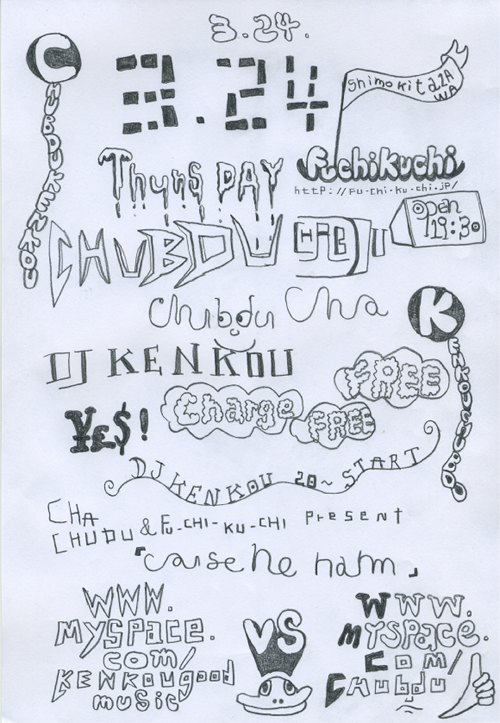 3.24.
C
HUBDUKENKOU
3.24
Shimokitaza
WA
fuchikuchi
http://fu-chi-ku-chi.jp/
ThursDAY
CHUBDU
open
19:30
Chubdu Cha
K
DJ KENKOU
FREE
Charge
FREE
¥E$!
DJ KENKOU 20~START
CHA
CHUDU & Fu-CHI-KU-CHI Present
「caise he nahm」
WWW.
myspace.
com/
KENKOUgood
music
VS
WWW.
myspace.
com/
Chubdu